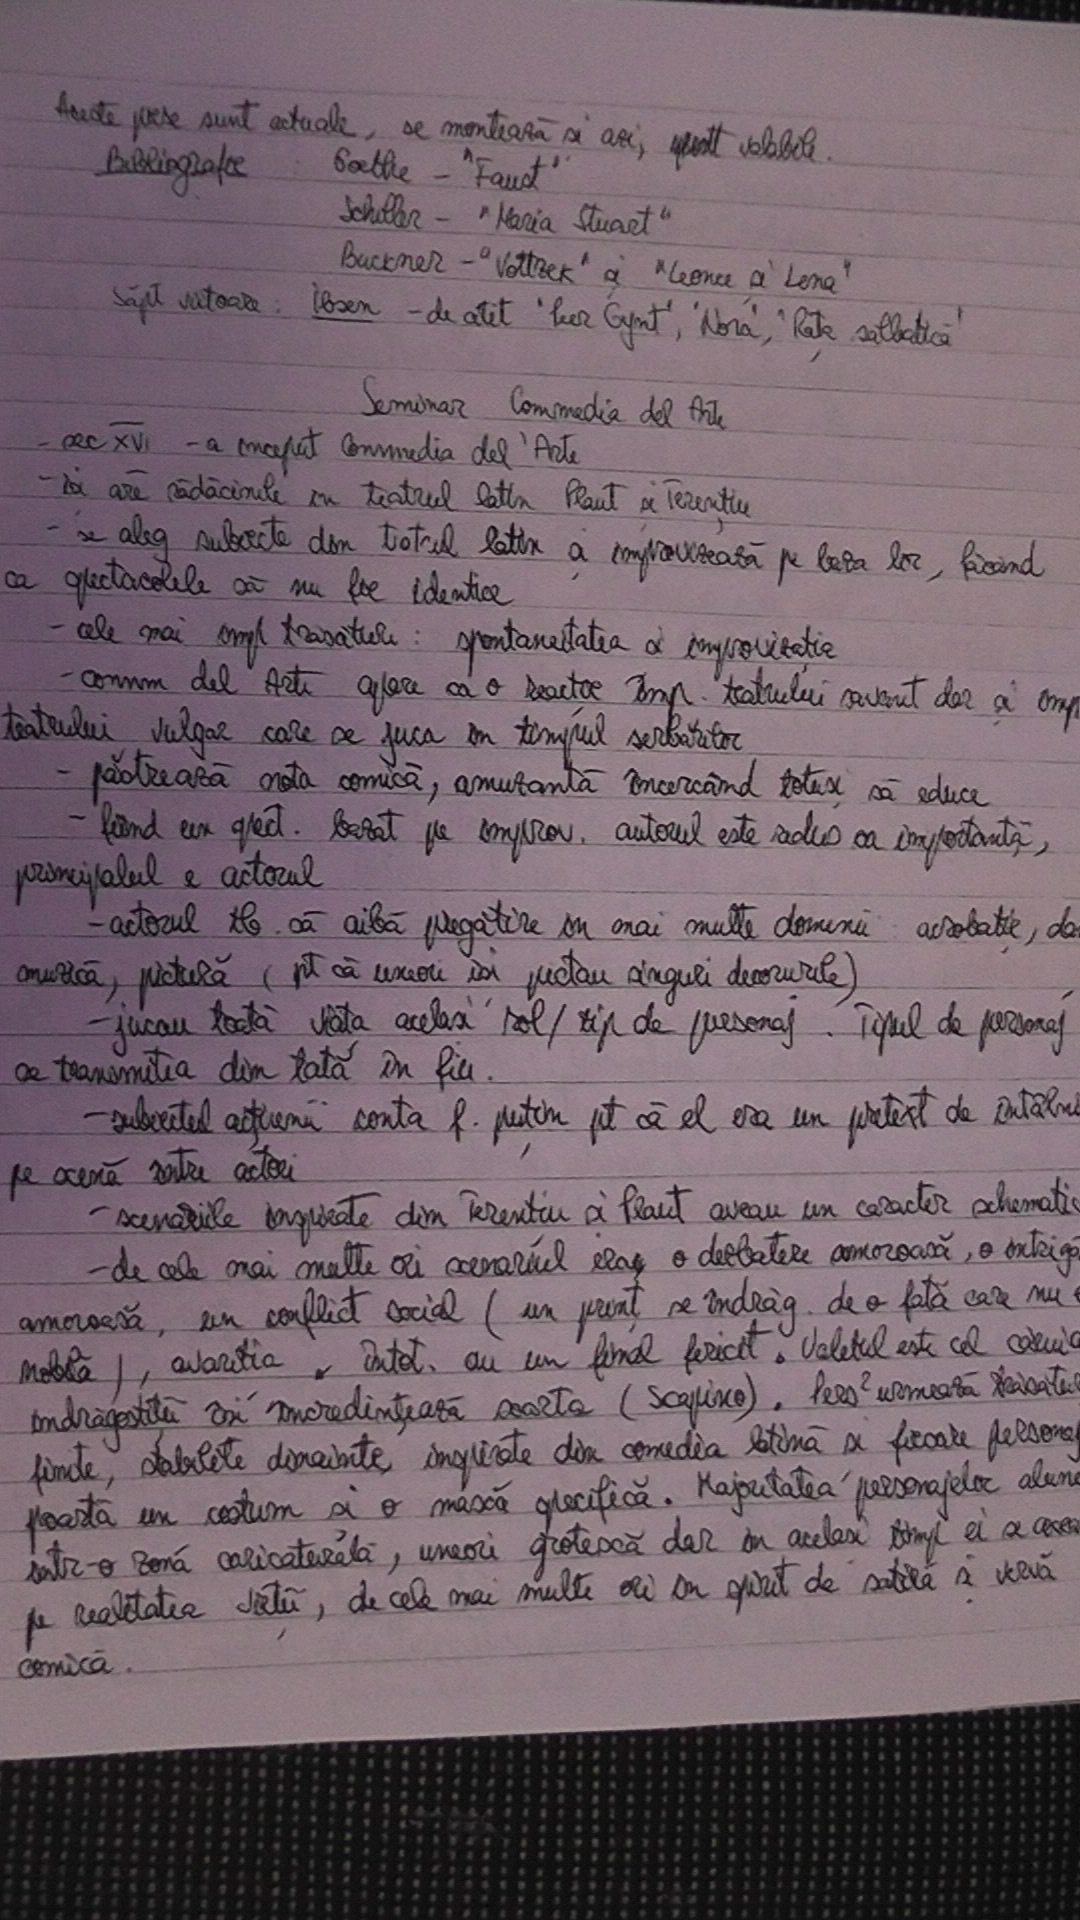 Aceste piese sunt actuale, se montează și azi, sunt valabile.
Bibliografie : Goethe - "Faust"
Schiller - "Maria Stuart"
Buckner - "Vottzek" și "Leonce și Lena"
Săpt viitoare : Ibsen - de citit 'Peer Gynt', 'Nora', 'Rața sălbatică'
Seminar Commedia del Arte
- sec XVI - a început Commedia del 'Arte
- își are rădăcinile în teatrul latin Plaut și Terențiu
- se aleg subiecte din teatrul latin și improvizează pe baza lor, făcând
ca spectacolele să nu fie identice
- cele mai imp trăsături : spontaneitatea și improvizația
- comm del Arte apare ca o reacție împ. teatrului savant dar și împ
teatrului vulgar care se juca în timpul serbărilor
- păstrează nota comică, amuzantă încercând totuși să educe
- fiind un spect. bazat pe improv. autorul este redus ca importanță,
principalul e actorul
- actorul tb. să aibă pregătire în mai multe domenii : acrobație, da
muzică, pictură ( pt că uneori își pictau singuri decorurile)
- jucau toată viața același rol / tip de personaj . Tipul de personaj
se transmitea din tată în fiu.
- subiectul acțiunii conta f. puțin pt că el era un pretext de întâlni
pe scenă între actori
- scenariile inspirate din Terențiu și Plaut aveau un caracter schematic
- de cele mai multe ori scenariul era o dezbatere amoroasă, o intrigă
amoroasă, un conflict social ( un prinț se îndrăg. de o fată care nu e
nobilă ), avariția . Întot. au un final fericit. Valetul este cel căruia
îndrăgostiții își încredințează soarta (Scapino). Pers² urmează trăsătur
fixate, stabilite dinainte, inspirate din comedia latină și fiecare personaj
poartă un costum și o mască specifică. Majoritatea personajelor alune
într-o zonă caricaturală, uneori grotescă dar în același timp ei se
pe realitatea vieții, de cele mai multe ori în spirit de satiră și vervă
comică.